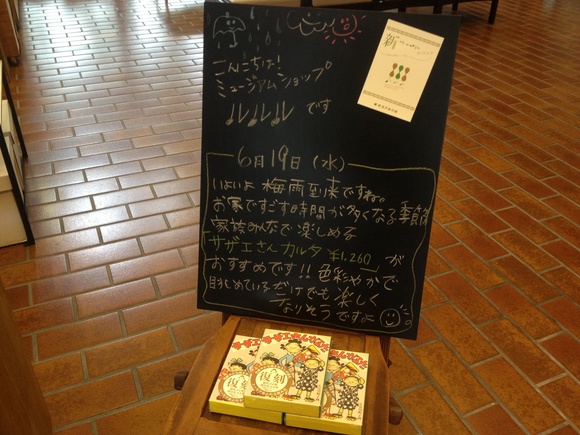 こんにちは!
ミュージアムショップ
ルルルル です
6月19日(水)
いよいよ 梅雨到来ですね。
お家ですごす時間が多くなる季節
家族みんなで楽しめる
サザエさんカルタ ¥1,260 が
おすすめです!! 色彩やかで
眺めているだけでも楽しく
なりそうですよ
復刻
復刻